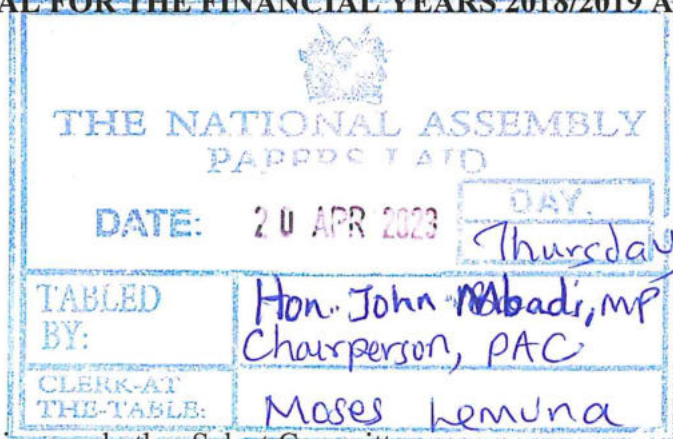 AL FOR THE FINANCIAL YEARS 2018/2019 A
THE NATIONAL ASSEMBLY
PAPERS LAID
DATE: 20 APR 2023
DAY.
Thursday
TABLED BY:
Hon. John Mbadi, MP
Chairperson, PAC
CLERK-AT THE-TABLE:
Moses Lemuna
Select Committee